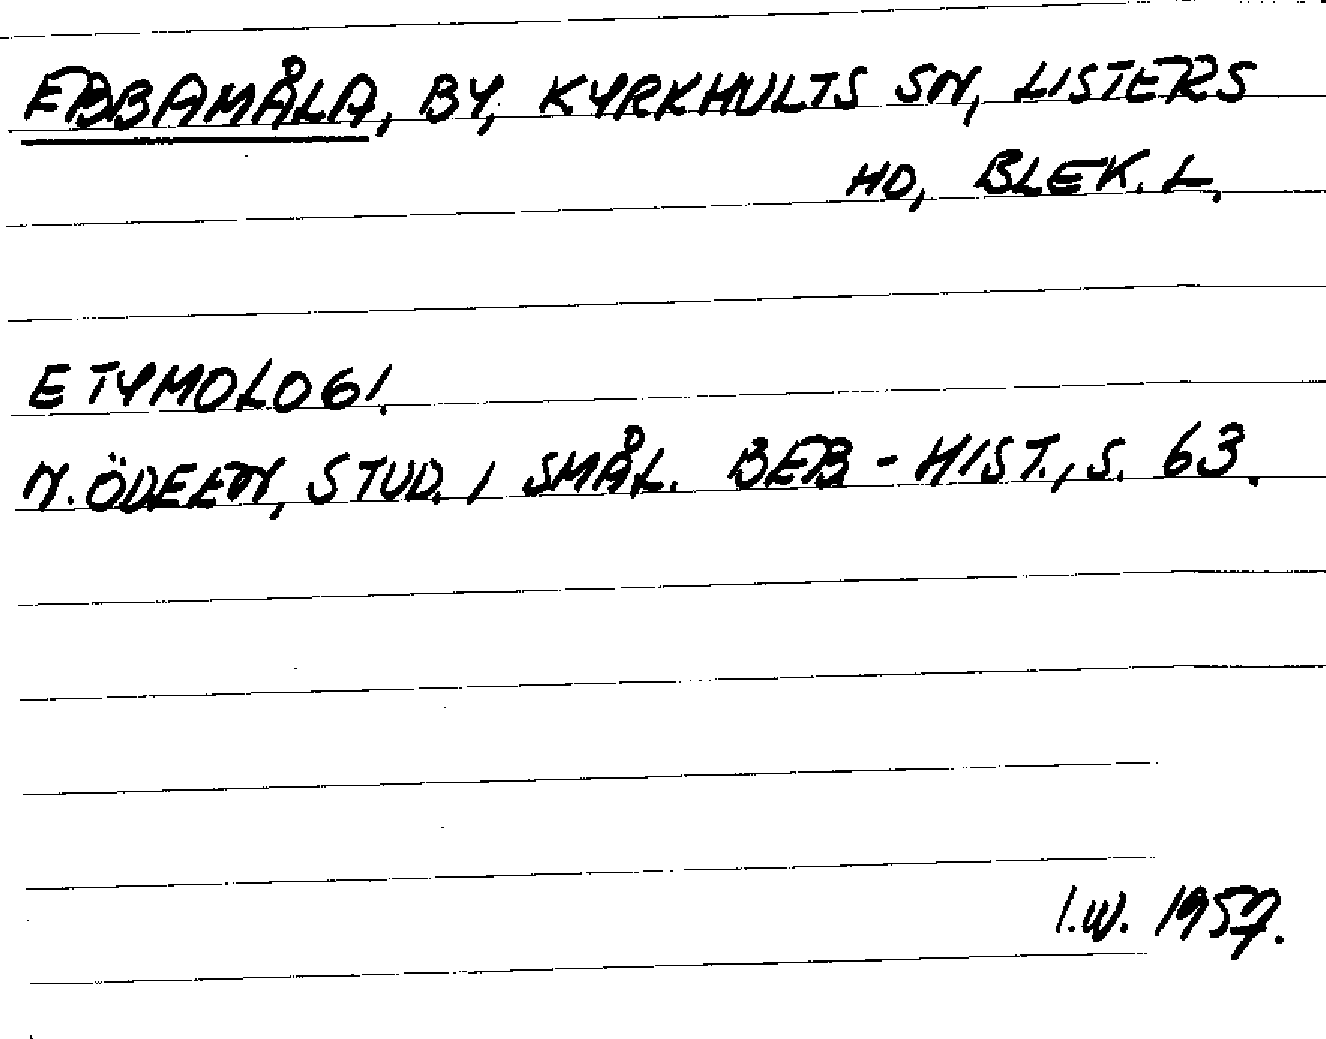 EBBAMÅLA, BY, KYRKHULTS SN, LISTERS
HD, BLEK. L.
ETYMOLOGI.
N. ÖDEEN, STUD. I SMÅL. BEB-HIST., S. 63.
I.W. 1957.